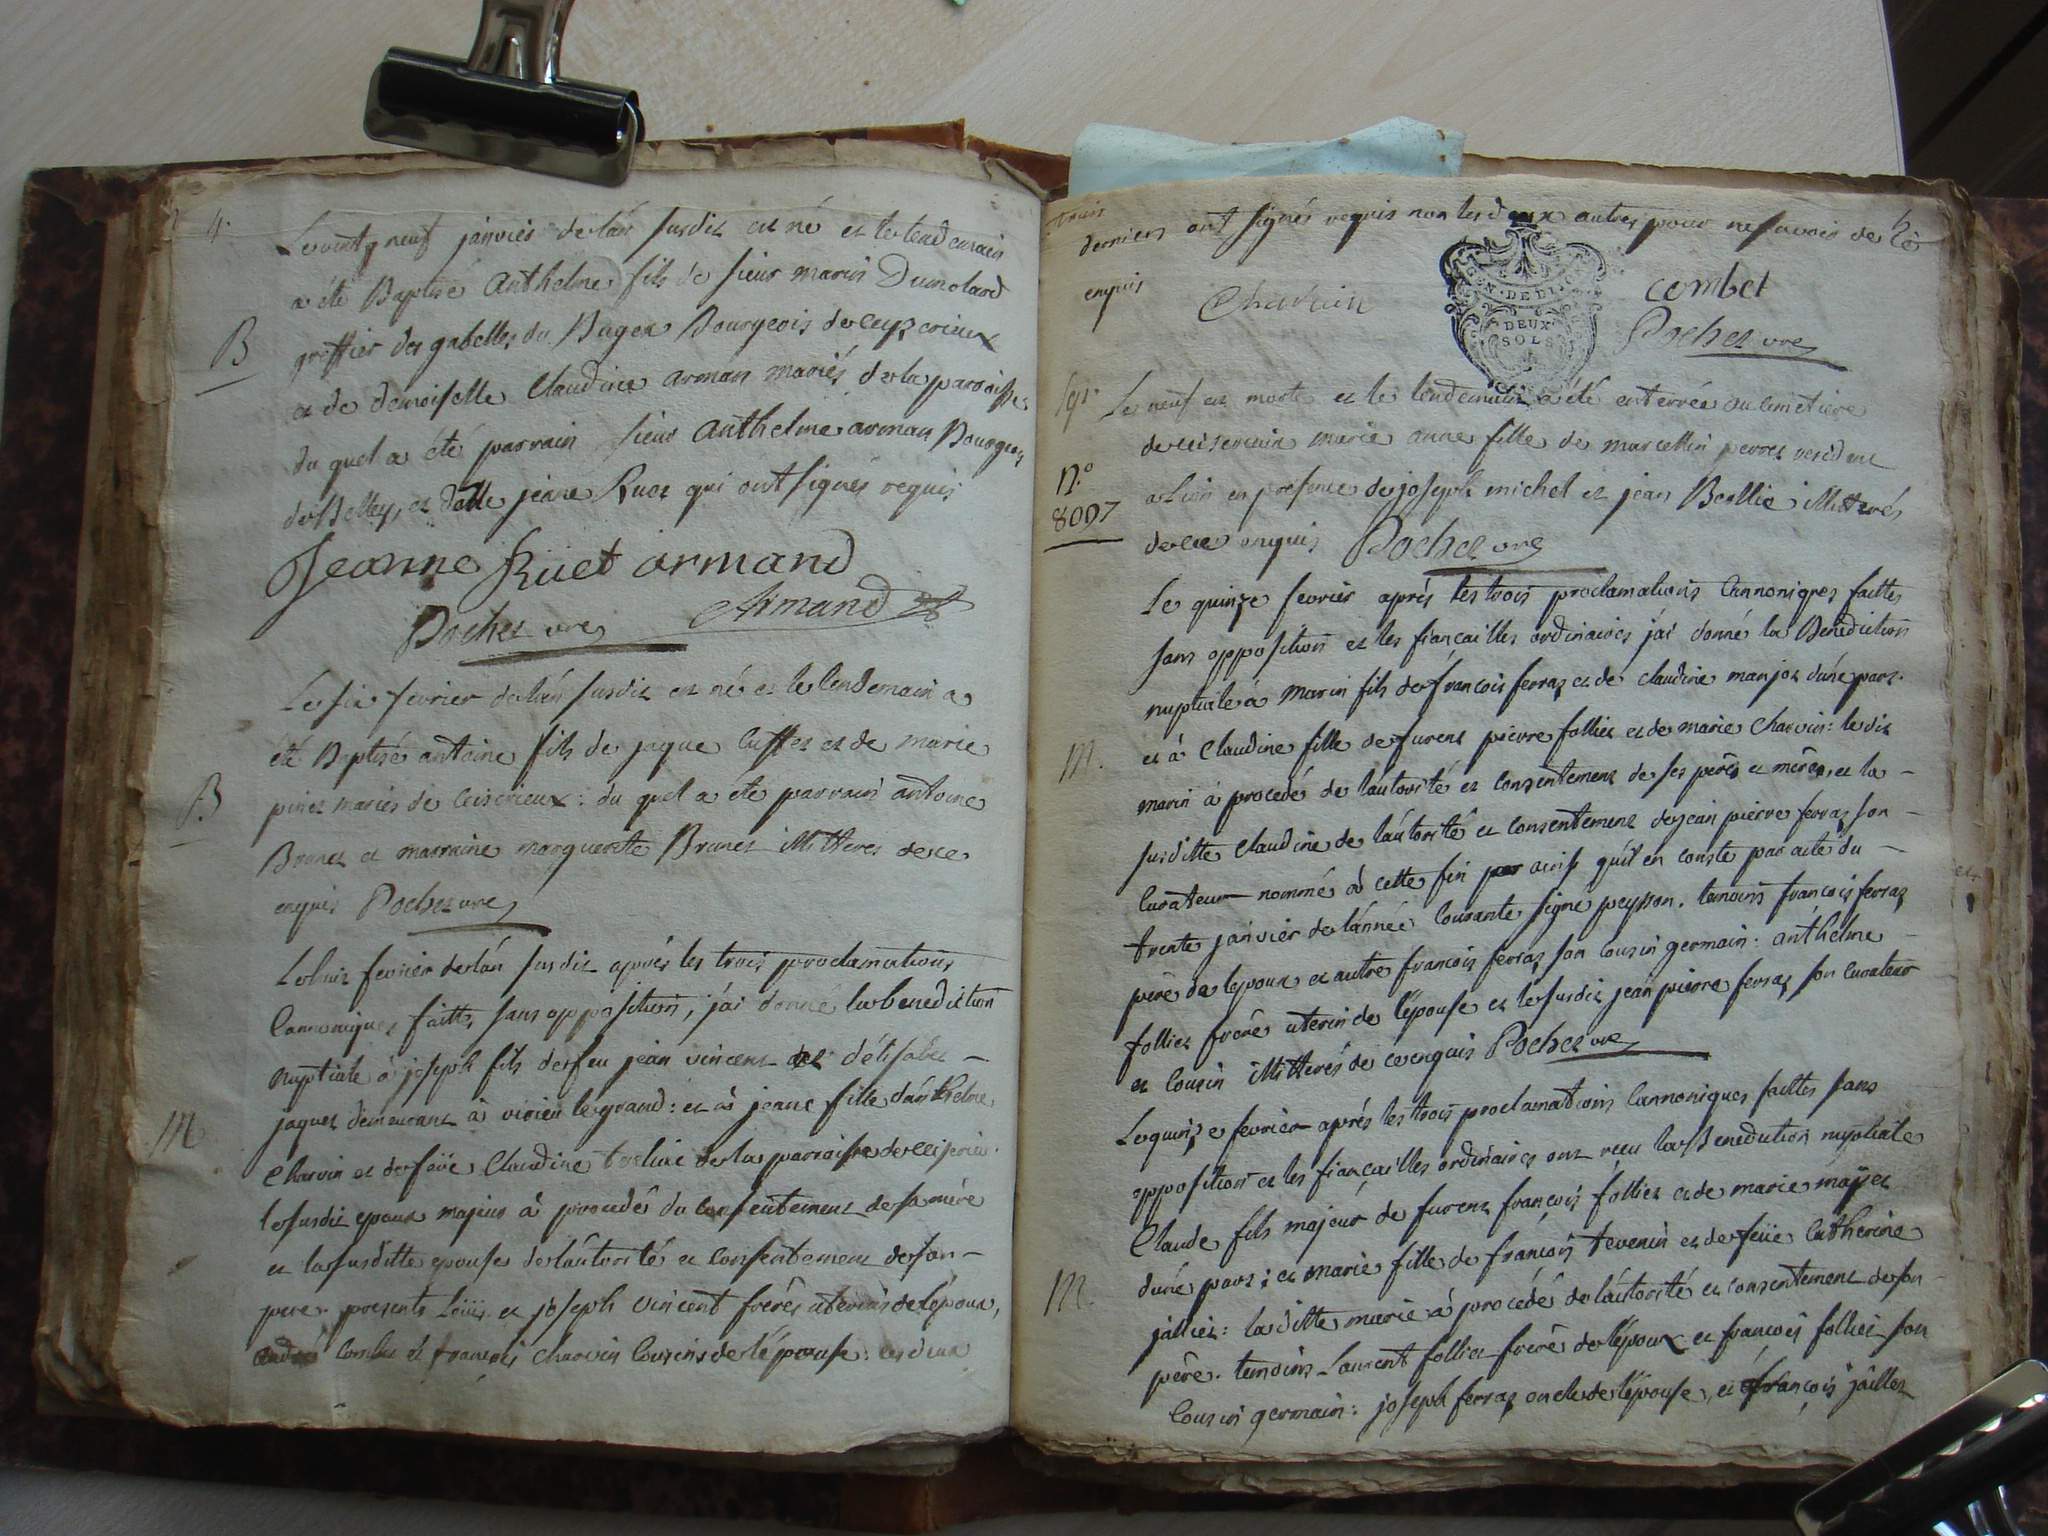 4.
Le vint neuf janvier de l'án susdit est né et le lendemain
a été Baptisé Anthelme fils de sieur marin Dumolard
B
greffier des gabelles du Bugey Bourgeois de
et de demoiselle Claudine arman mariés de la paroisse
du quel a été parrain sieur Anthelme arman Bourgeois
de Belley, et jeane Ruet qui ont signés requis
Jeanne Rüet armand
Pochet vre Armand
Le six fevrier de l'án susdit est né et le lendemain a
été Baptisé antoine fils de jaque et de marie
B.
mariés de Ceiserieux: du quel a été parrain antoine
Brunet et marraine marguerite Brunet illitteres de ce
enquis Pochet vre
Le huit fevrier de l'án susdit aprés les trois proclamations
Cannoniques faittes sans opposition, j'ai donné la benediction
nuptiale à joseph fils de feu jean vincent
demeurant à virieu le grand: et à jeane fille d'ánthelme
M
Charvin et de feüe Claudine de la parroisse de
le susdit epoux majeur à procedé du consentement de sa mére
et la susditte epouse de l'áutorité et consentement de son -
pere. presents Loüis et joseph vincent fréres uterins de l'époux,
combet et françois charvin Cousins de l'épouse: les deux
derniers ont signés requis non les deux autres pour ne savoir de ce
enquis
Charvin
GEN. DE DIJON
DEUX
SOLS
combet
Pochet vre
Le neuf est morte et le lendemain a été enterrée au cimetiere
de marie anne fille de marcellin perret resident
N.o
8097
en presence de joseph michel et jean Beallie illitterés
de ce enquis Pochet vre
Le quinze fevrier aprés les trois proclamations Cannoniques faittes
sans opposition et les fiançailles ordinaires j'ai donné la Benediction
nuptiale à marin fils de françois ferraz et de claudine manjot d'une part.
M.
et à Claudine fille de furent pierre folliet et de marie Charvin: le dit
marin à procedé de l'áutorité et consentement de ses pére et mére, et la -
susditte Claudine de l'áutorité et consentement de jean pierre ferraz son -
Curateur nommé à cette fin ainsi qu'il en conste par acte du -
trente janvier de l'ánnée Courante signé peysson. temoins françois ferraz
pére de l'epoux et autre françois ferraz son cousin germain: ánthelme -
follier frére uterin de l'épouse et le susdit jean pierre ferraz son Curateur
et Cousin illitterés de ce enquis Pochet vre
Le quinze fevrier aprés les trois proclamations Cannoniques faittes sans
opposition et les fiançailles ordinaires ont reçu la Benediction nuptiale
Claude fils majeur de furent françois folliet et de marie
d'une part: et marie fille de françois tevenin et de feüe Catherine
M.
jalliet: la ditte marie à procedé de l'áutorité et consentement de son
pére. temoins Laurent folliet frére de l'époux et françois folliet son
Cousin germain: joseph ferraz oncle de l'épouse, et françois jâillet